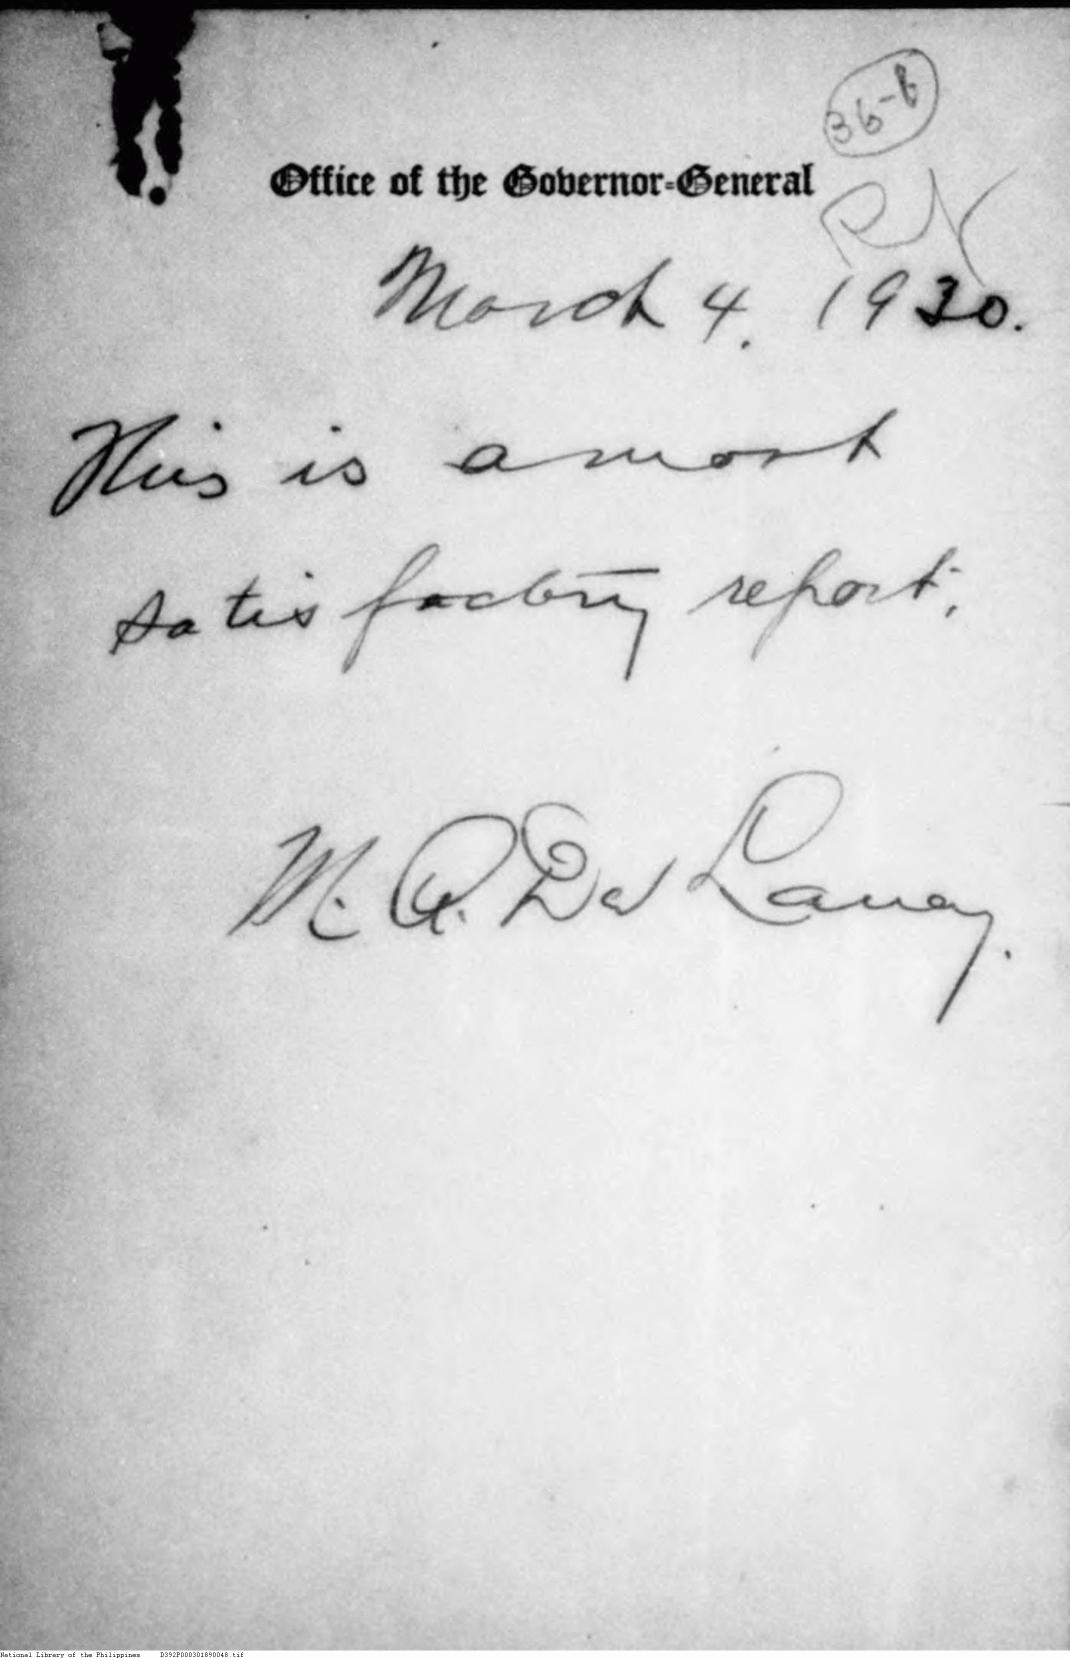 36-8
Office of the Governor-General
RN
March 4. 1930.
This is a most
satisfactory report.
M. A. De Laney.
National Library of the Philippines D392P000301890048.tif